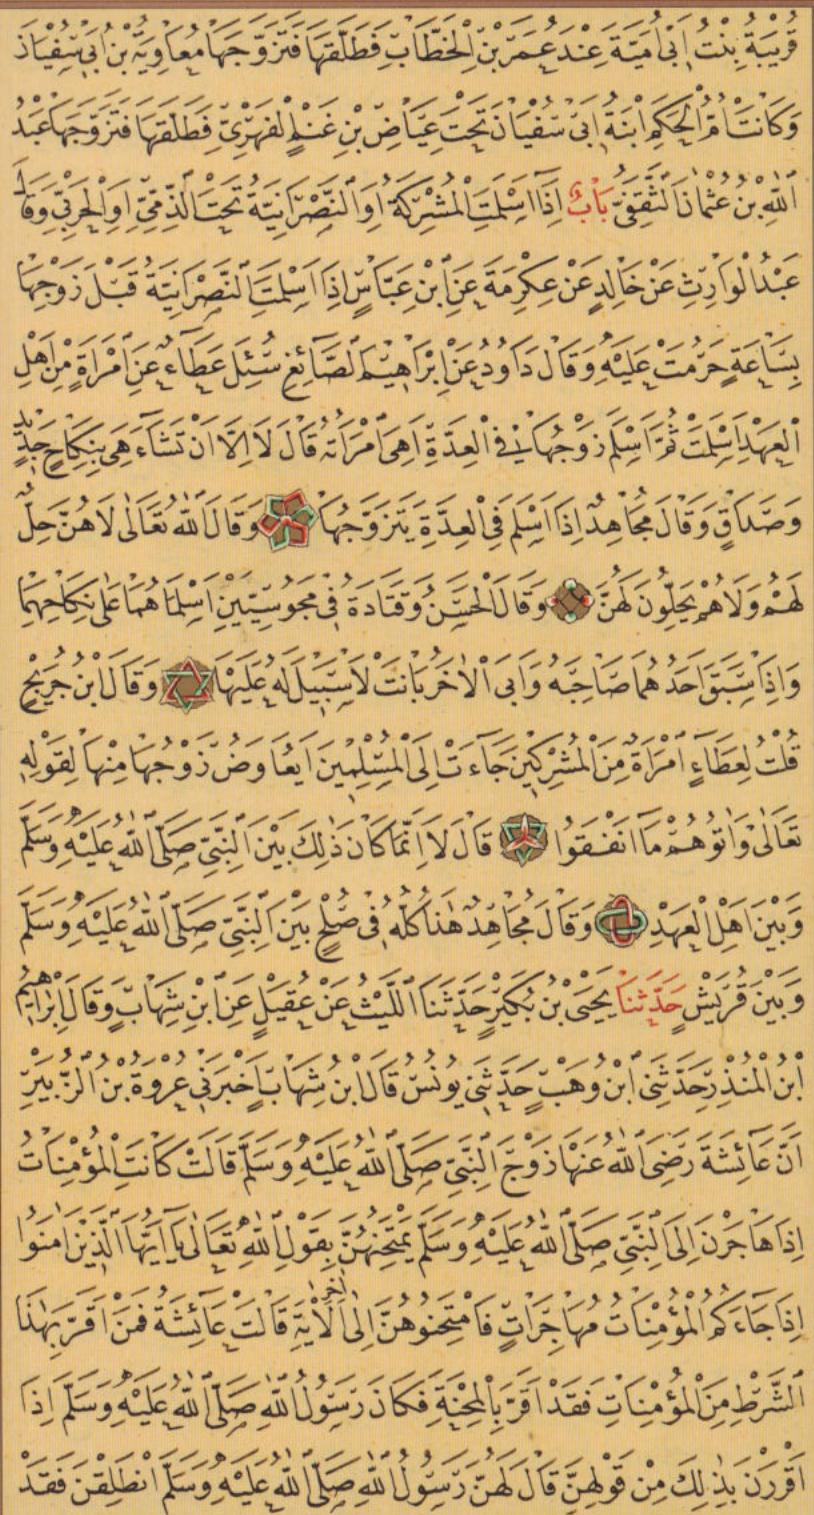 قُرَيْبَةُ بِنْتُ اَبِى اُمَيَّةَ عِنْدَ عُمَرَ بْنِ الْخَطَّابِ فَطَلَّقَهَا فَتَزَوَّجَهَا مُعَاوِيَةُ بْنُ اَبِى سُفْيَانَ
وَكَانَتْ اُمُّ الْحَكَمِ ابْنَةُ اَبِى سُفْيَانَ تَحْتَ عِيَاضِ بْنِ غَنْمٍ الْفِهْرِىِّ فَطَلَّقَهَا فَتَزَوَّجَهَا عَبْدُ
اللّٰهِ بْنُ عُثْمَانَ الثَّقَفِىُّ بَابُ اِذَا اَسْلَمَتِ الْمُشْرِكَةُ اَوِ النَّصْرَانِيَّةُ تَحْتَ الذِّمِّىِّ اَوِ الْحَرْبِىِّ وَقَالَ
عَبْدُ الْوَارِثِ عَنْ خَالِدٍ عَنْ عِكْرِمَةَ عَنِ ابْنِ عَبَّاسٍ اِذَا اَسْلَمَتِ النَّصْرَانِيَّةُ قَبْلَ زَوْجِهَا
بِسَاعَةٍ حَرُمَتْ عَلَيْهِ وَقَالَ دَاوُدُ عَنْ اِبْرَاهِيمَ الصَّائِغِ سُئِلَ عَطَاءٌ عَنِ امْرَاَةٍ مِنْ اَهْلِ
الْعَهْدِ اَسْلَمَتْ ثُمَّ اَسْلَمَ زَوْجُهَا فِى الْعِدَّةِ اَهِىَ امْرَاَتُهُ قَالَ لَا اِلَّا اَنْ تَشَاءَ هِىَ بِنِكَاحٍ جَدِيدٍ
وَصَدَاقٍ وَقَالَ مُجَاهِدٌ اِذَا اَسْلَمَ فِى الْعِدَّةِ يَتَزَوَّجُهَا وَقَالَ اللّٰهُ تَعَالٰى لَاهُنَّ حِلٌّ
لَهُمْ وَلَاهُمْ يَحِلُّونَ لَهُنَّ وَقَالَ الْحَسَنُ وَقَتَادَةُ فِى مَجُوسِيَّيْنِ اَسْلَمَا هُمَا عَلٰى نِكَاحِهِمَا
وَاِذَا سَبَقَ اَحَدُهُمَا صَاحِبَهُ وَاَبَى الْاٰخَرُ بَانَتْ لَاسَبِيلَ لَهُ عَلَيْهَا وَقَالَ ابْنُ جُرَيْجٍ
قُلْتُ لِعَطَاءٍ امْرَاَةٌ مِنَ الْمُشْرِكِينَ جَاءَتْ اِلَى الْمُسْلِمِينَ اَيُعَاوَضُ زَوْجُهَا مِنْهَا لِقَوْلِهِ
تَعَالٰى وَاٰتُوهُمْ مَا اَنْفَقُوا قَالَ لَا اِنَّمَا كَانَ ذٰلِكَ بَيْنَ النَّبِىِّ صَلَّى اللّٰهُ عَلَيْهِ وَسَلَّمَ
وَبَيْنَ اَهْلِ الْعَهْدِ وَقَالَ مُجَاهِدٌ هٰذَا كُلُّهُ فِى صُلْحٍ بَيْنَ النَّبِىِّ صَلَّى اللّٰهُ عَلَيْهِ وَسَلَّمَ
وَبَيْنَ قُرَيْشٍ حَدَّثَنَا يَحْيَى بْنُ بُكَيْرٍ حَدَّثَنَا اللَّيْثُ عَنْ عُقَيْلٍ عَنِ ابْنِ شِهَابٍ وَقَالَ اِبْرَاهِيمُ
ابْنُ الْمُنْذِرِ حَدَّثَنِى ابْنُ وَهْبٍ حَدَّثَنِى يُونُسُ قَالَ ابْنُ شِهَابٍ اَخْبَرَنِى عُرْوَةُ بْنُ الزُّبَيْرِ
اَنَّ عَائِشَةَ رَضِىَ اللّٰهُ عَنْهَا زَوْجَ النَّبِىِّ صَلَّى اللّٰهُ عَلَيْهِ وَسَلَّمَ قَالَتْ كَانَتِ الْمُؤْمِنَاتُ
اِذَا هَاجَرْنَ اِلَى النَّبِىِّ صَلَّى اللّٰهُ عَلَيْهِ وَسَلَّمَ يَمْتَحِنُهُنَّ بِقَوْلِ اللّٰهِ تَعَالٰى يَا اَيُّهَا الَّذِينَ اٰمَنُوا
اِذَا جَاءَكُمُ الْمُؤْمِنَاتُ مُهَاجِرَاتٍ فَامْتَحِنُوهُنَّ اِلٰى اٰخِرِ الْاٰيَةِ قَالَتْ عَائِشَةُ فَمَنْ اَقَرَّ بِهٰذَا
الشَّرْطِ مِنَ الْمُؤْمِنَاتِ فَقَدْ اَقَرَّ بِالْمِحْنَةِ فَكَانَ رَسُولُ اللّٰهِ صَلَّى اللّٰهُ عَلَيْهِ وَسَلَّمَ اِذَا
اَقْرَرْنَ بِذٰلِكَ مِنْ قَوْلِهِنَّ قَالَ لَهُنَّ رَسُولُ اللّٰهِ صَلَّى اللّٰهُ عَلَيْهِ وَسَلَّمَ انْطَلِقْنَ فَقَدْ